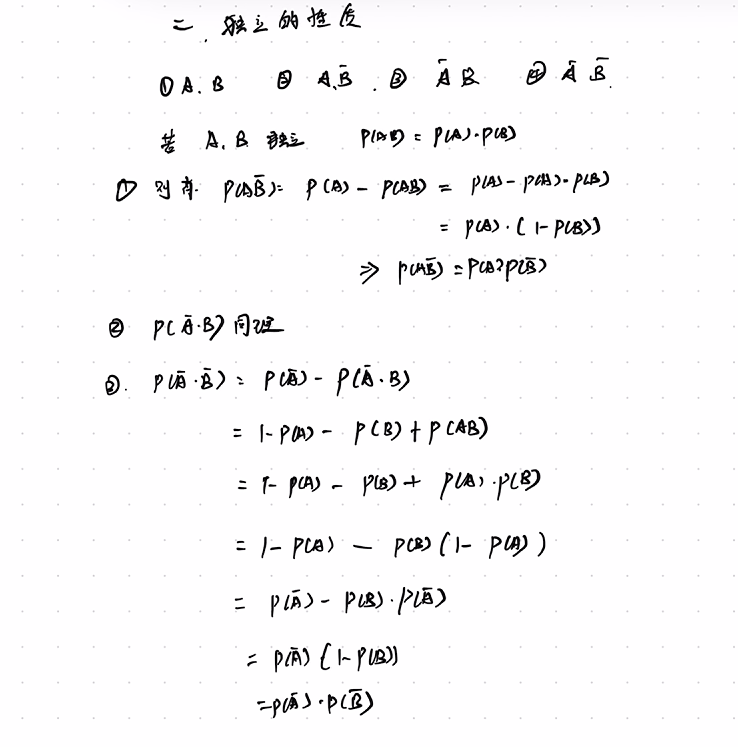 二. 独立的性质
① A.B ② A.B̄. ③ Ā B ④ Ā B̄.
若 A.B 独立 P(AB) = P(A)·P(B)
① 则有. P(AB̄) = P(A) - P(AB) = P(A) - P(A)·P(B)
= P(A)·(1-P(B))
⇒ P(AB̄) = P(A)P(B̄)
② P(Ā·B) 同理
③. P(Ā·B̄) = P(Ā) - P(Ā·B)
= 1-P(A) - P(B) + P(AB)
= 1- P(A) - P(B) + P(A)·P(B)
= 1- P(A) — P(B) (1- P(A))
= P(Ā) - P(B)·P(Ā)
= P(Ā) (1-P(B))
=P(Ā)·P(B̄)